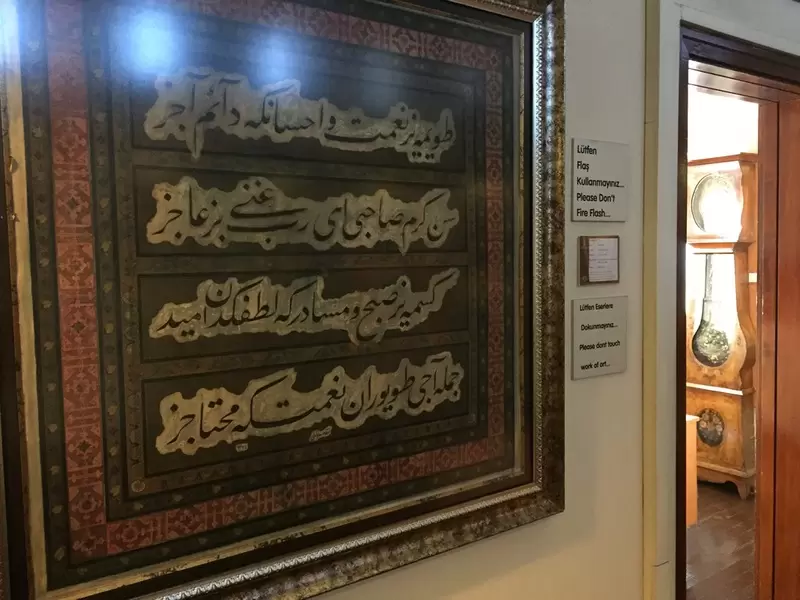 طويميز نعمت و احسانكه دائم آجز
سن كرم صاحبى اى رب غنى بز عاجز
كسميز صبح و مسا دركه لطفكدن اميد
جمله آجى طويوران نعمتكه محتاجز
Lütfen
Flaş
Kullanmayınız...
Please Don't
Fire Flash...
Lütfen Eserlere
Dokunmayınız...
Please dont touch
work of art...